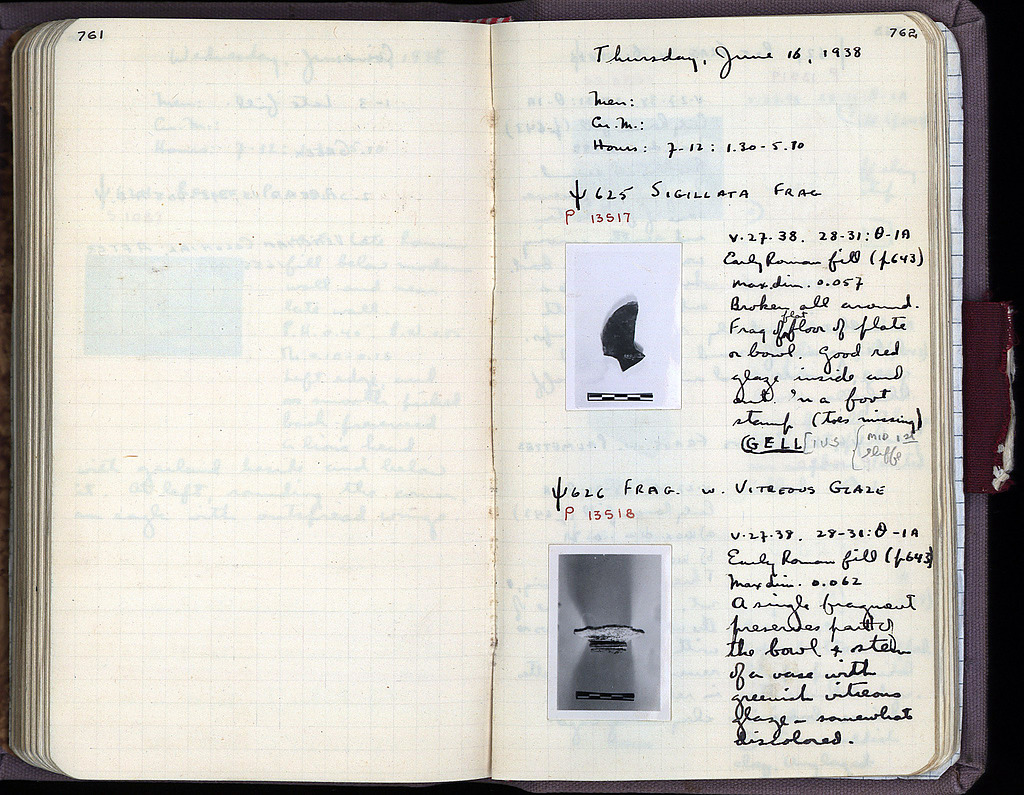 761
762
Thursday, June 16, 1938
Men:
Cu. M.:
Hours: 7-12: 1.30-5.30
Ψ 625 SIGILLATA FRAG
P 13517
V.27.38. 28-31: Θ-1A
Early Roman fill (p643)
Max. dim. 0.057
Broken all around.
Frag of flat floor of plate
or bowl. Good red
glaze inside and
out. In a foot
stamp (toes missing)
GELL[IUS
MID 1st
Ψ 626 FRAG. W. VITREOUS GLAZE
P 13518
V.27.38. 28-31: Θ-1A
Early Roman fill (p643)
Max dim. 0.062
A single fragment
preserves part of
the bowl & stem
of a vase with
greenish vitreous
glaze - somewhat
discolored.